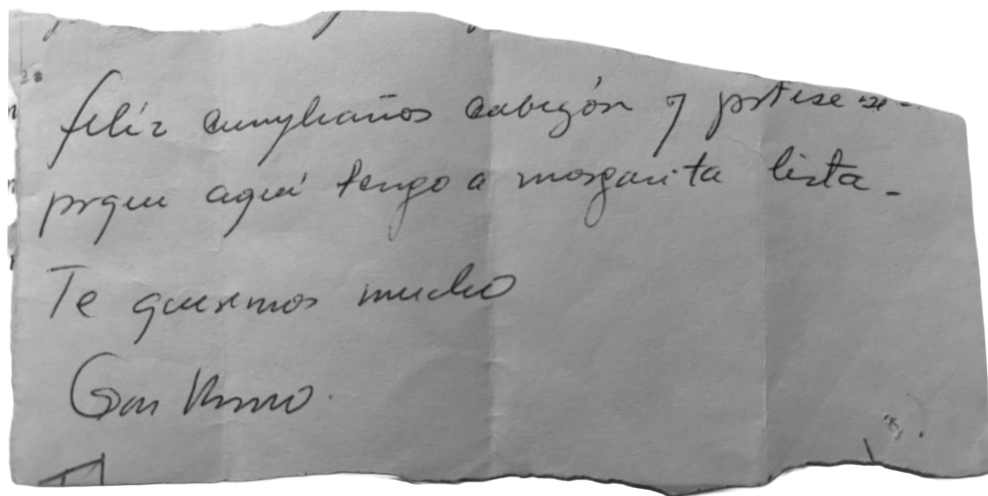 feliz cumpleaños cabezón y pórtese
prque aquí tengo a margarita lista -
Te queremos mucho